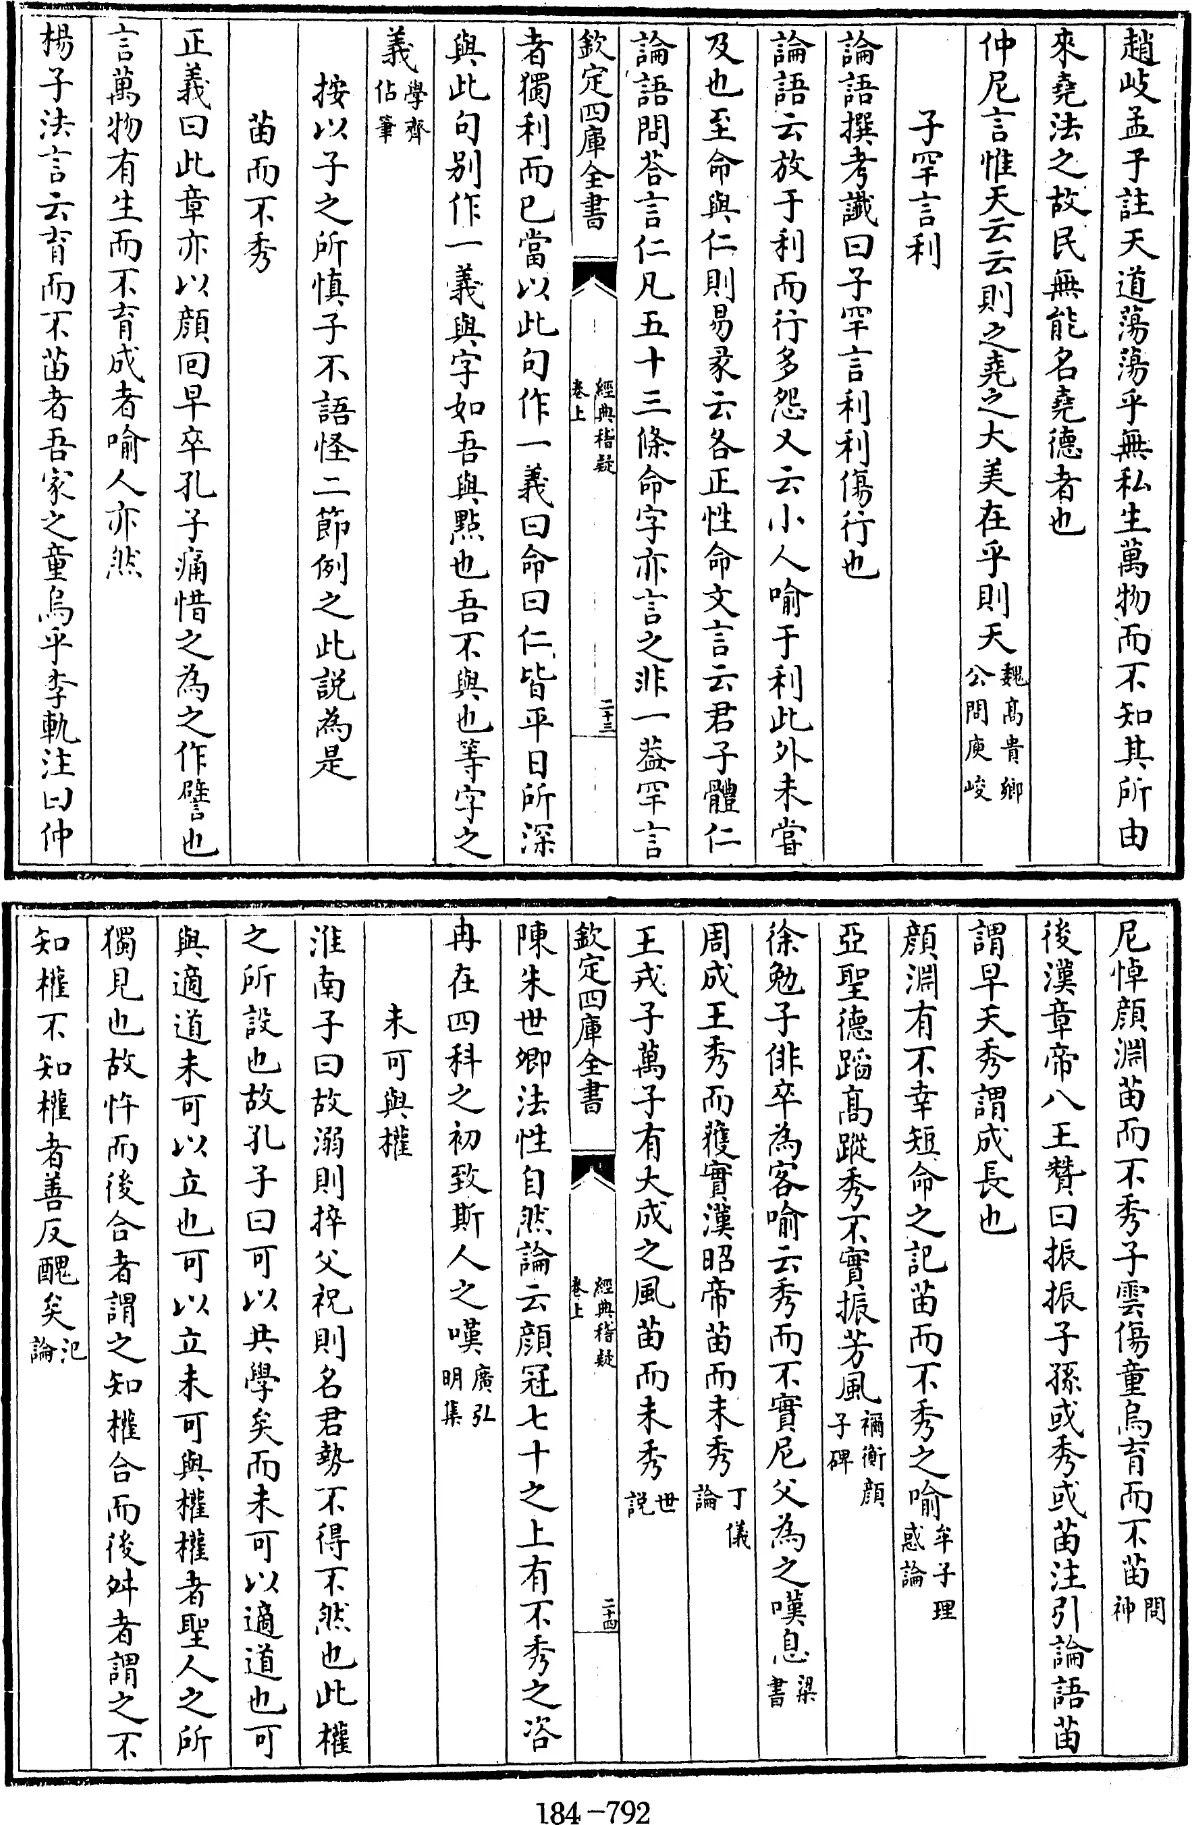 趙岐孟子註天道蕩蕩乎無私生萬物而不知其所由
來堯法之故民無能名堯德者也
仲尼言惟天云云則之堯之大美在乎則天魏髙貴鄉公問庾峻
子罕言利
論語撰考讖曰子罕言利利傷行也
論語云放于利而行多怨又云小人喻于利此外未嘗
及也至命與仁則易彖云各正性命文言云君子體仁
論語問荅言仁凡五十三條命字亦言之非一葢罕言
欽定四庫全書
經典稽疑
卷上
二十三
者獨利而已當以此句作一義曰命曰仁皆平日所深
與此句别作一義與字如吾與點也吾不與也等字之
義學齊佔筆
按以子之所慎子不語怪二節例之此說為是
苗而不秀
正義曰此章亦以顔回早卒孔子痛惜之為之作譬也
言萬物有生而不育成者喻人亦然
楊子法言云育而不苗者吾家之童烏乎李軌注曰仲
尼悼顔淵苗而不秀子雲傷童烏育而不苗問神
後漢章帝八王贊曰振振子孫或秀或苗注引論語苗
謂早夭秀謂成長也
顔淵有不幸短命之記苗而不秀之喻牟子理惑論
亞聖德蹈髙蹤秀不實振芳風禰衡顔子碑
徐勉子俳卒為客喻云秀而不實尼父為之嘆息梁書
周成王秀而獲實漢昭帝苗而未秀丁儀論
王戎子萬子有大成之風苗而未秀世説
欽定四庫全書
經典稽疑
卷上
二十四
陳朱世卿法性自然論云顔冠七十之上有不秀之咨
冉在四科之初致斯人之嘆廣弘明集
未可與權
淮南子曰故溺則捽父祝則名君勢不得不然也此權
之所設也故孔子曰可以共學矣而未可以適道也可
與適道未可以立也可以立未可與權權者聖人之所
獨見也故忤而後合者謂之知權合而後舛者謂之不
知權不知權者善反醜矣氾論
184-792